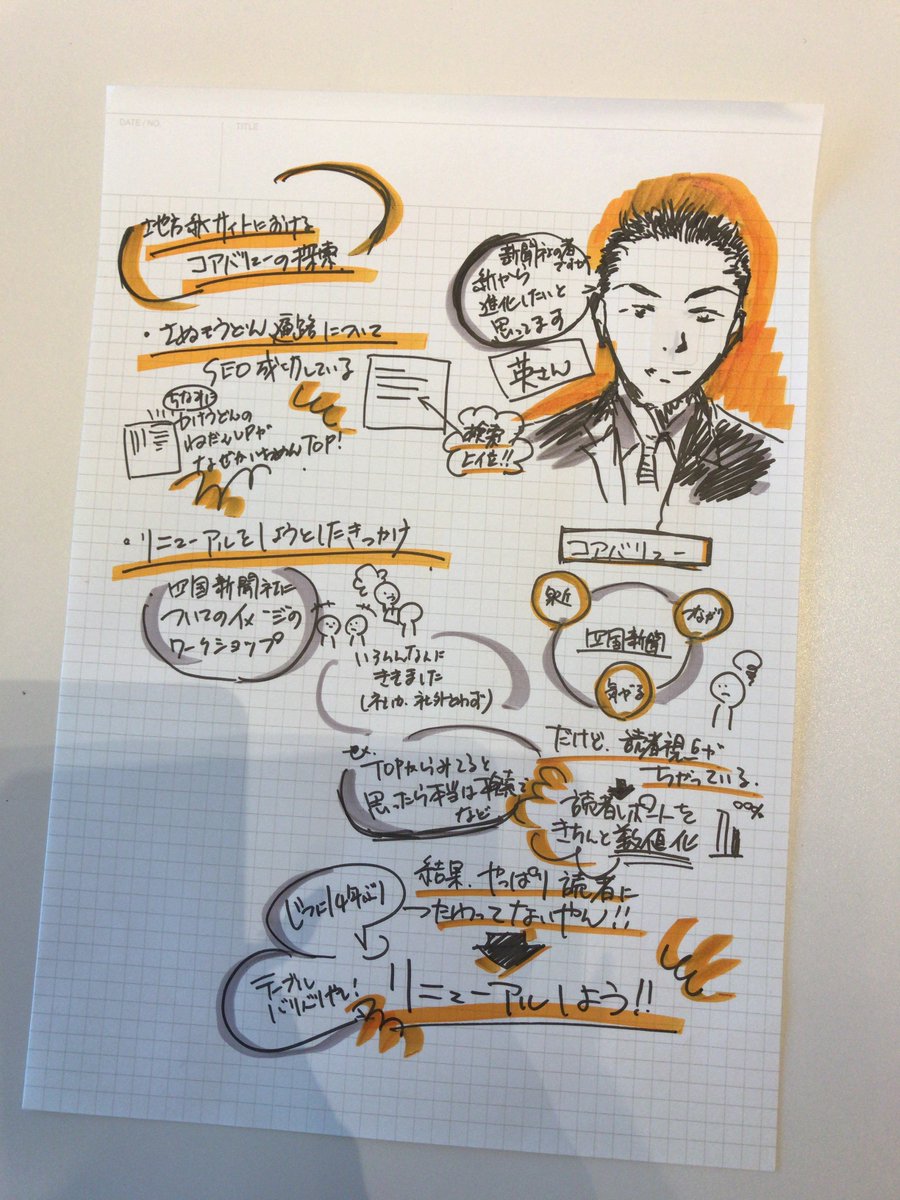 DATE・NO.
TITLE
地方紙サイトにおける
コアバリューの探索
新聞社の者
ですが
紙から
進化したいと
思ってます
英さん
・さぬきうどん遍路について
SEO成功している
ちなみに
かけうどんの
ねだんUPが
なぜか TOP!
検索
上位!!
・リニューアルをしようとしたきっかけ
四国新聞社に
ついてのイメージの
ワークショップ
いろんな人に
ききました
(社内、社外とわず)
コアバリュー
身近
つながり
四国新聞
気がる
ex.
TOPからみてると
思ったら本当は検索で
など
だけど、読者視点が
ちがっている.
読者レポートを
きちんと数値化
結果、やっぱり読者に
つたわってないやん!!
じつに14年ぶり
テーブル
バリバリやし!
リニューアルしよう!!